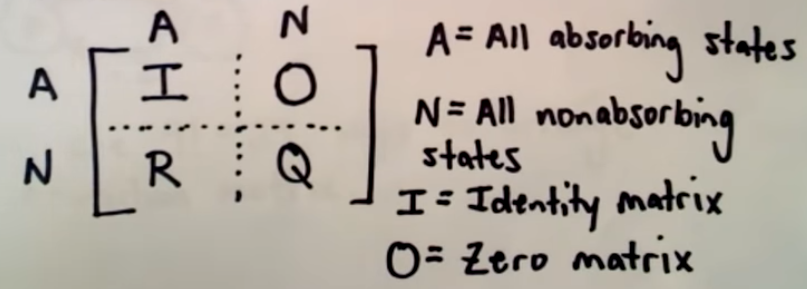 A N
A I O
N R Q
A = All absorbing states
N = All nonabsorbing
states
I = Identity matrix
O = Zero matrix